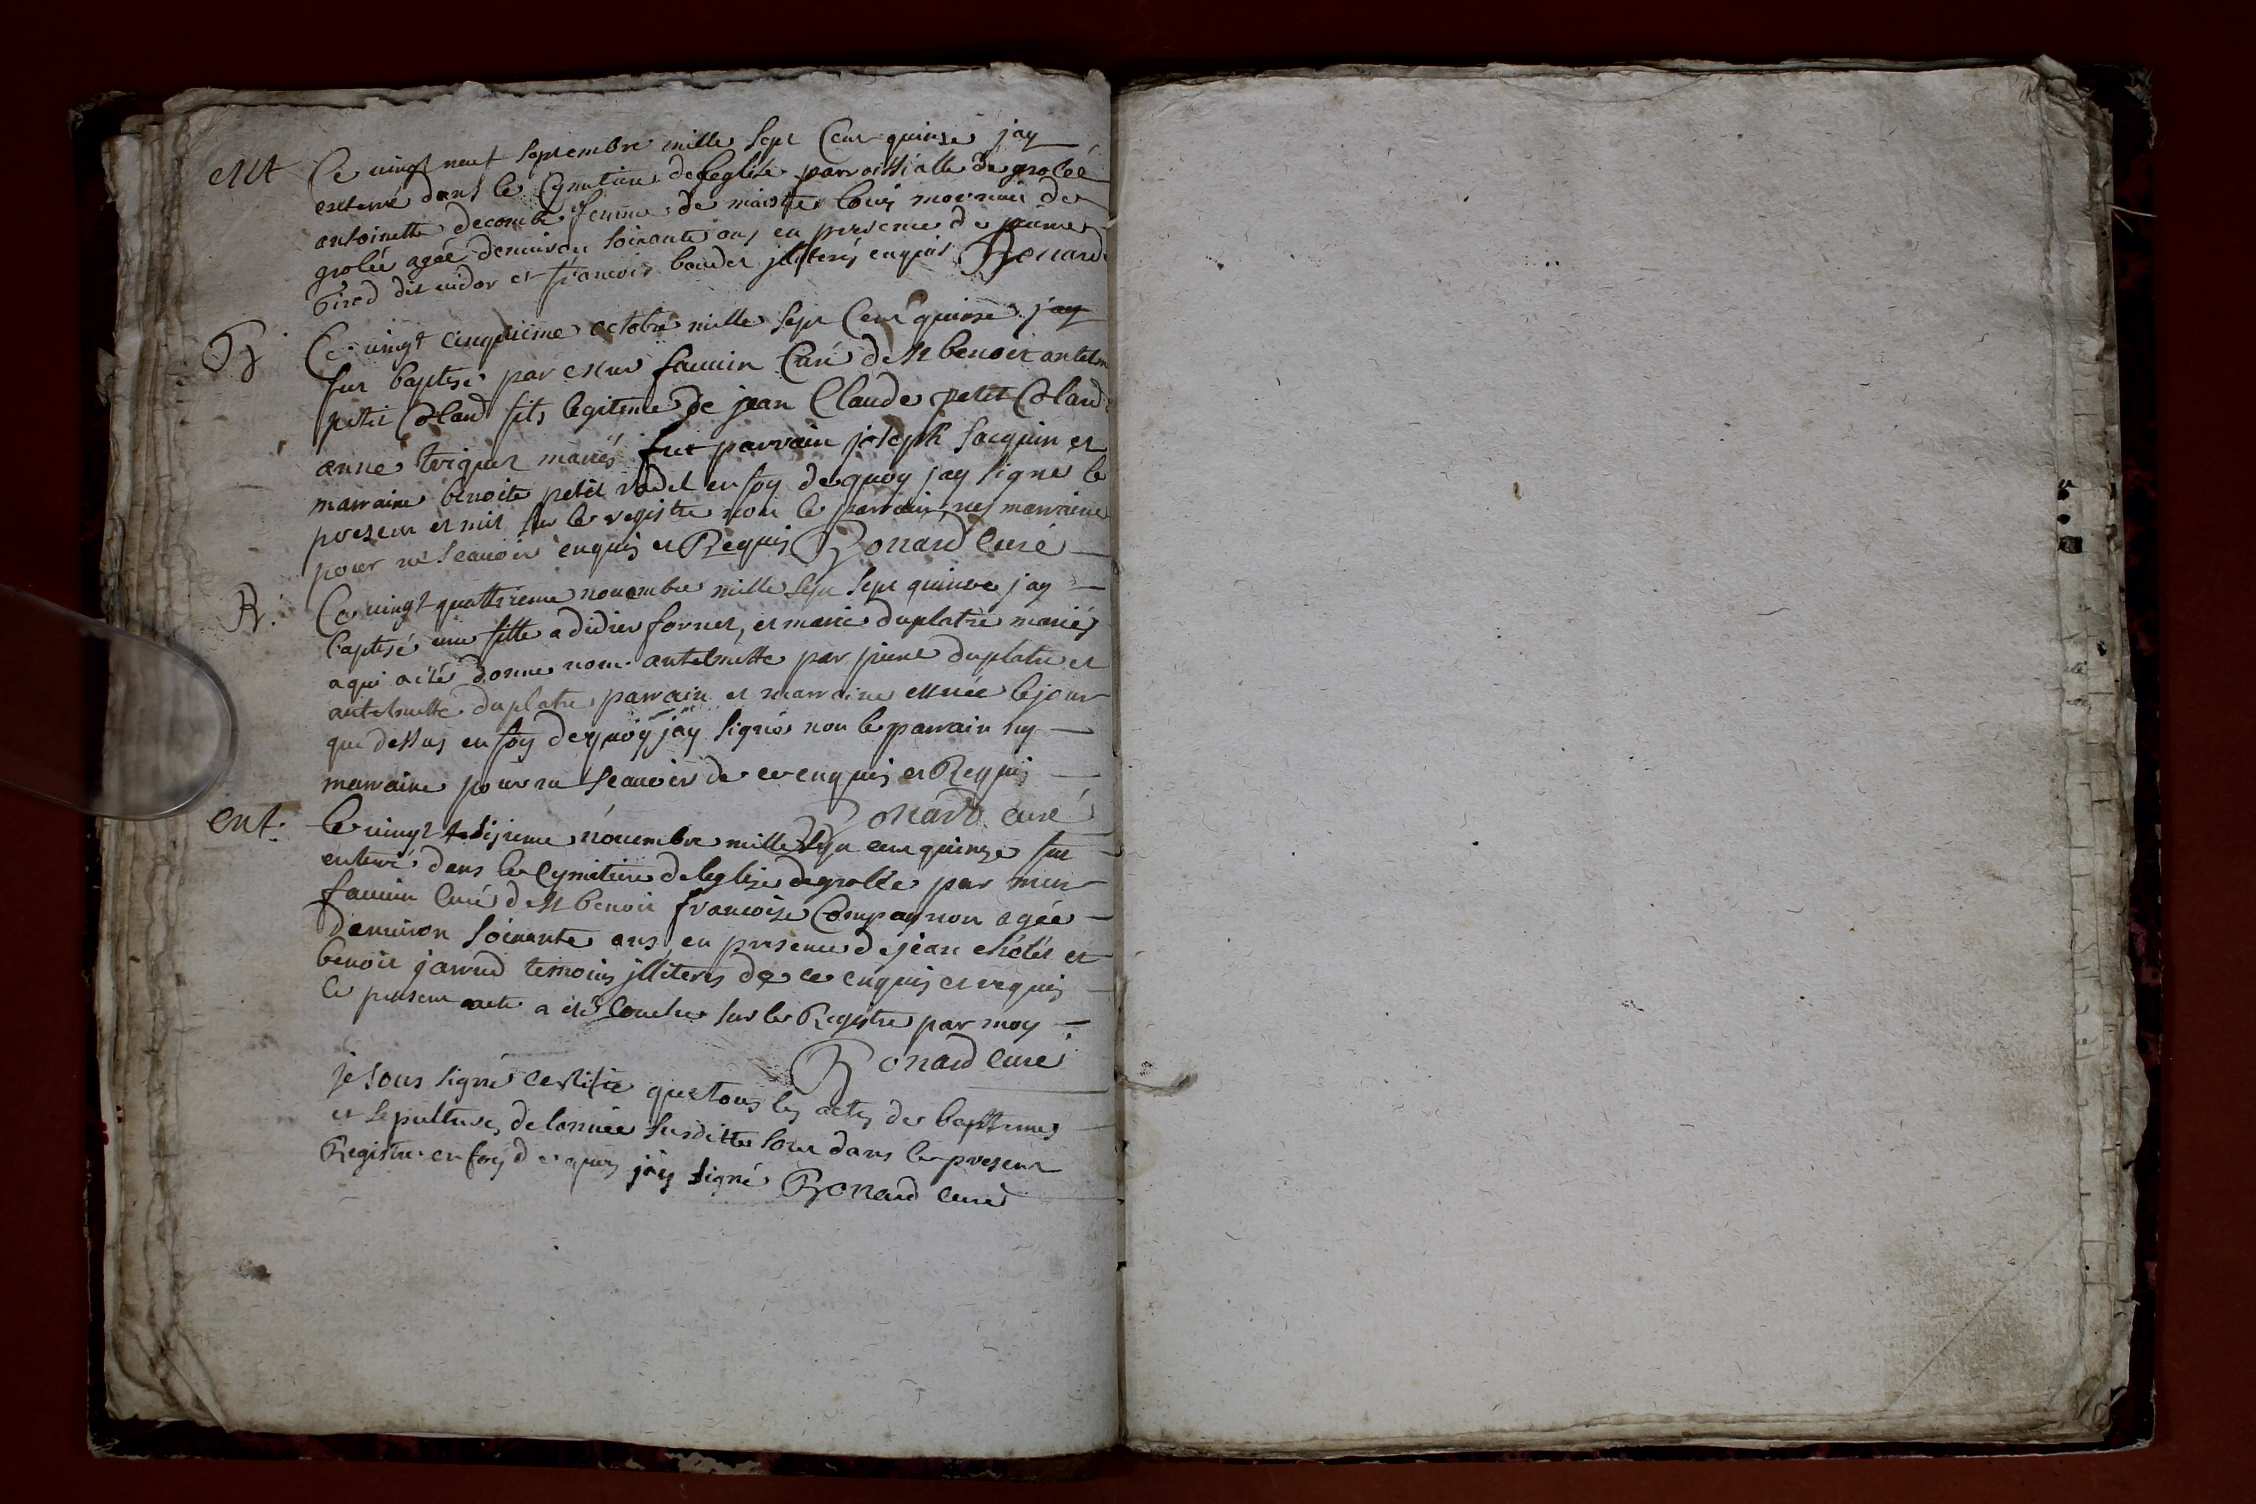 ent Ce vingt neuf septembre mille sept Cent quinze jay
enterré dans le Cymitiere de leglise parroissialle de groleé
antoinette decombe femme de maistre louis mornieu de
groleé ageé denuiron soixante ans en presence de pierre
dit uidor et francois baudet jlliterés enquis Bonard
B. Ce uingt cinquiéme octobre mille sept Cent quinse jay
fut baptisé par Mre faunin Curé de St benoit antelme
petit Coland fils legitime de jean Claude petit Coland
anne mariés fut parrain joseph Jacquin et
marraine benoite petit en foy de quoy jay signé le
present et mis sur le registre non le parrain ny marraine
pour ne scauoir enquis et Requis Bonard Curé
B. Ce uingt quattrieme nouembre mille sept sept quinze jay
baptisé une fille a didier fornet, et marie duplatre mariés
a qui a été donné nom antelmette par pierre duplatre et
antelmette duplatre parrain et marraine le jour
que dessus en foy de quoy jay signé non le parrain ny
marraine pour ne scauoir de ce enquis et Requis
Bonard curé
ent. Le uingt sixieme nouembre mille sept cent quinze fut
enterré dans le Cymitiere de leglize de grolée par
faunin Curé de St benoit francoise Compagnon agée
Denuiron soixante ans en presence de jean et
benoit temoins jlliterés de ce enquis et requis
le present acte a été Couché sur le Registre par moy
Bonard Curé
je sous signé certifie que tous les actes de baptemes
et sepultures de lannée susditte sont dans le present
Registre en foy de quoy jay signé Bonard curé